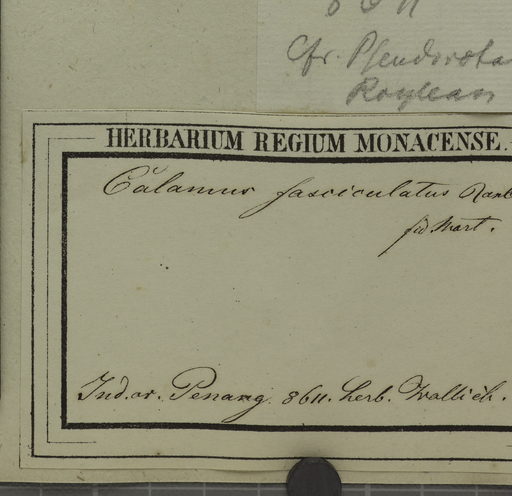 Cfr. Pseudorota
Roylean
HERBARIUM REGIUM MONACENSE.
Calamus fasciculatus Roxb
fid Mart.
Ind. or. Penang. 8611. herb. Wallich.